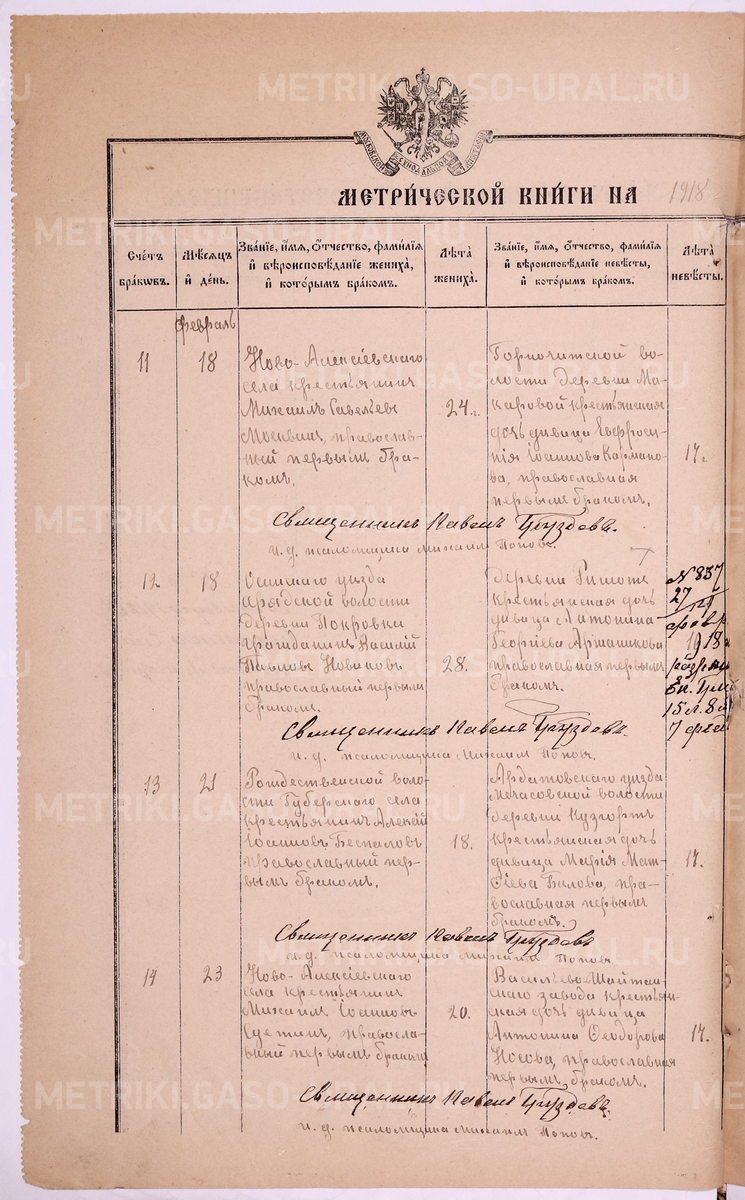 МЕТРИ́ЧЕСКОЙ КНИ́ГИ НА 1918
Сче́тъ бра́кωвъ.
Мѣ́сяцъ и҆ де́нь.
Зва́нїе, и҆́мѧ, ѻ҆́тчество, фами́лїѧ и҆ вѣроисповѣ́данїе жениха̀, и҆ кото́рымъ бра́комъ.
Лѣ́та̀ жениха̀.
Зва́нїе, и҆́мѧ, ѻ҆́тчество, фами́лїѧ и҆ вѣроисповѣ́данїе невѣ́сты, и҆ кото́рымъ бра́комъ.
Лѣ́та̀ невѣ́сты.
февраль
11
18
Ново-Алексѣевскаго
села крестьянинъ
Михаилъ Савельевъ
Москвинъ, православ-
ный первымъ бра-
комъ.
24 г.
во-
лости деревни Ма-
каровой крестьянская
дочь дѣвица Евфроси-
нія Іоаннова Кармано-
ва, православная
первымъ бракомъ.
17 г
Священникъ Павелъ Груздевъ.
и. д. псаломщика Михаилъ Поповъ.
12
18
Осинскаго уѣзда
волости
деревни Покровки
гражданинъ Василій
Павловъ Новиковъ
православный первымъ
бракомъ.
28.
деревни
крестьянская дочь
дѣвица Антонина
Георгіева
православная первымъ
бракомъ.
№ 837
27
февр
1918 г
15 л. 8 м
7
Священникъ Павелъ Груздевъ.
и. д. псаломщика Михаилъ Поповъ.
13
21
Рождественской воло-
сти Губерскаго села
крестьянинъ Алексѣй
Іоанновъ Беспаловъ
православный пер-
вымъ бракомъ.
18.
Ардатовскаго уѣзда
волости
деревни Кузгортъ
крестьянская дочь
дѣвица Марія Мат-
ѳіева Билова, пра-
вославная первымъ
бракомъ.
17.
Священникъ Павелъ Груздевъ
и. д. псаломщика Михаилъ Поповъ
14
23
Ново-Алексѣевскаго
села крестьянинъ
Михаилъ Іоанновъ
православ-
ный первымъ бракомъ
20.
Васильево-Шайтан-
скаго завода крестьян-
ская дочь дѣвица
Антонина Ѳеодорова
Носова, православная
первымъ бракомъ.
17.
Священникъ Павелъ Груздевъ
и. д. псаломщика Михаилъ Поповъ.
METRIKI.GASO-URAL.RU